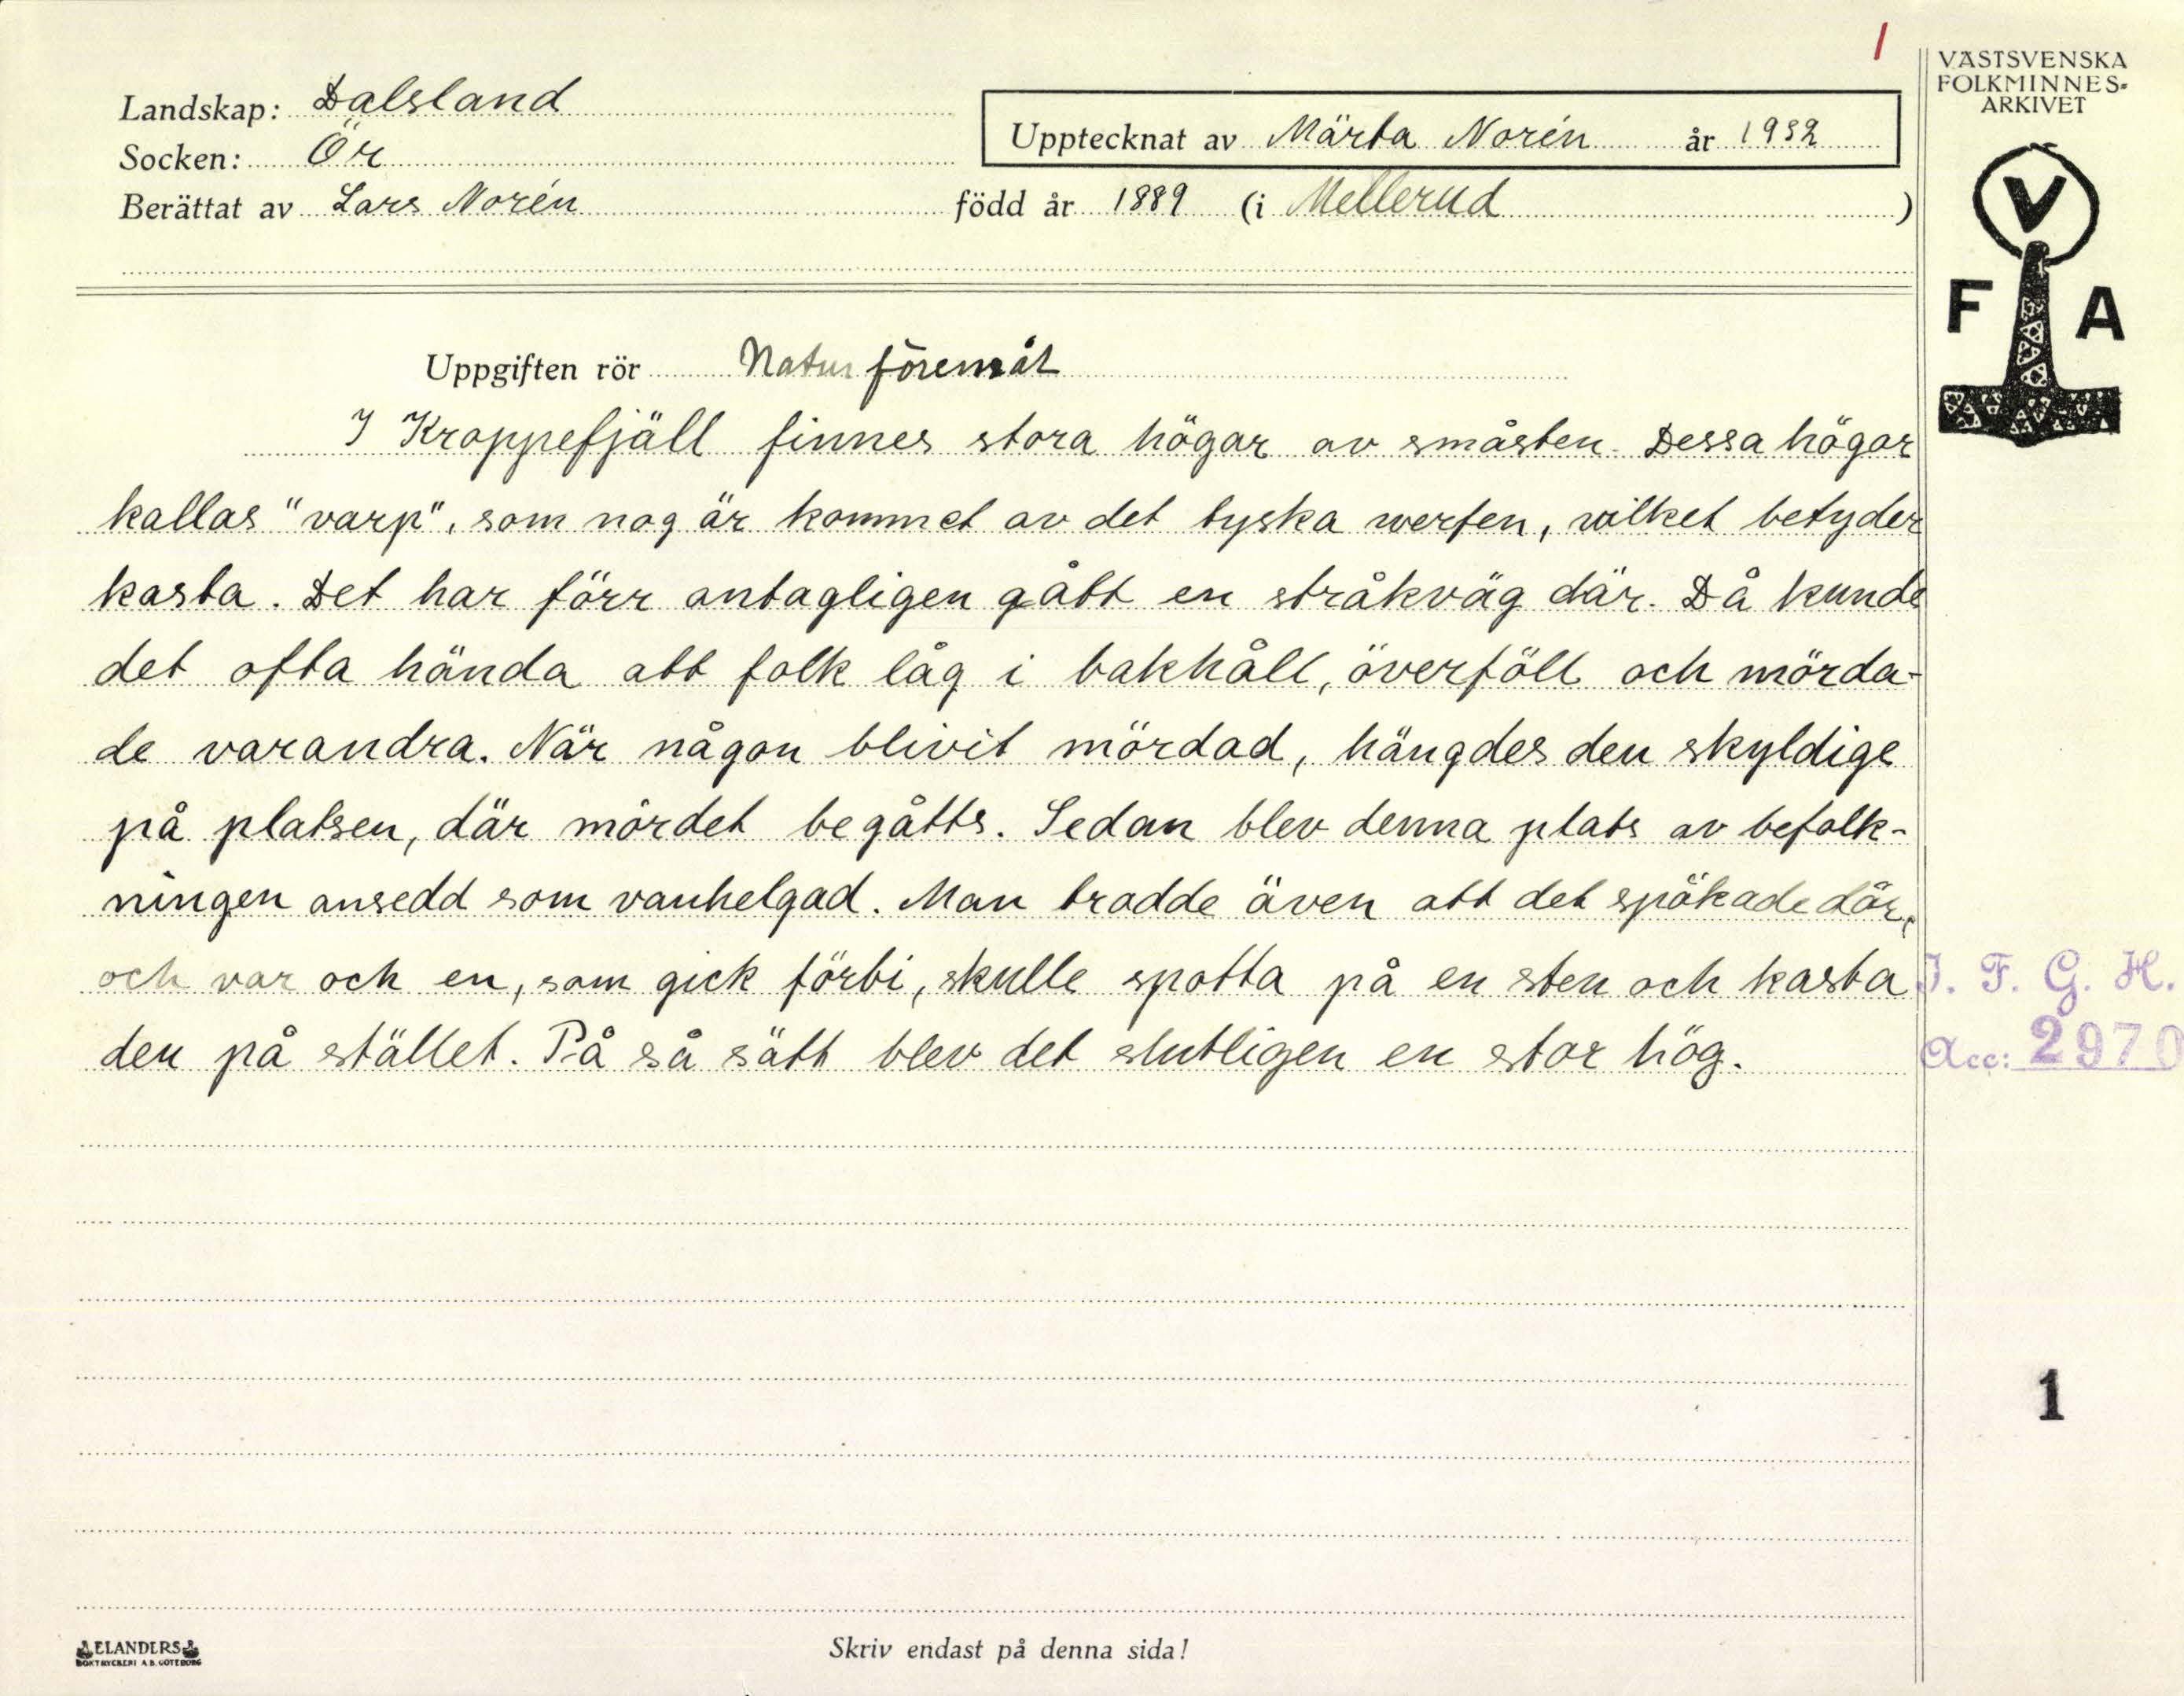 1
VÄSTSVENSKA
FOLKMINNES-
ARKIVET
Landskap: Dalsland
Upptecknat av Märta Norén år 1932
Socken: Ör
Berättat av Lars Norén född år 1889 (i Mellerud )
V
F A
Uppgiften rör Naturföremål
I Kroppefjäll finnes stora högar av småsten. Dessa högar
kallas "varp", som nog är kommet av det tyska werfen, vilket betyder
kasta. Det har förr antagligen gått en stråkväg där. Då kunde
det ofta hända att folk låg i bakhåll, överföll och mörda-
de varandra. När någon blivit mördad, hängdes den skyldige
på platsen, där mordet begåtts. Sedan blev denna plats av befolk-
ningen ansedd som vanhelgad. Man trodde även att det spökade där,
och var och en, som gick förbi, skulle spotta på en sten och kasta
den på stället. På så sätt blev det slutligen en stor hög.
I. F. G. H.
Acc: 2970
1
ELANDERS
BOKTRYCKERI A.B. GÖTEBORG
Skriv endast på denna sida!